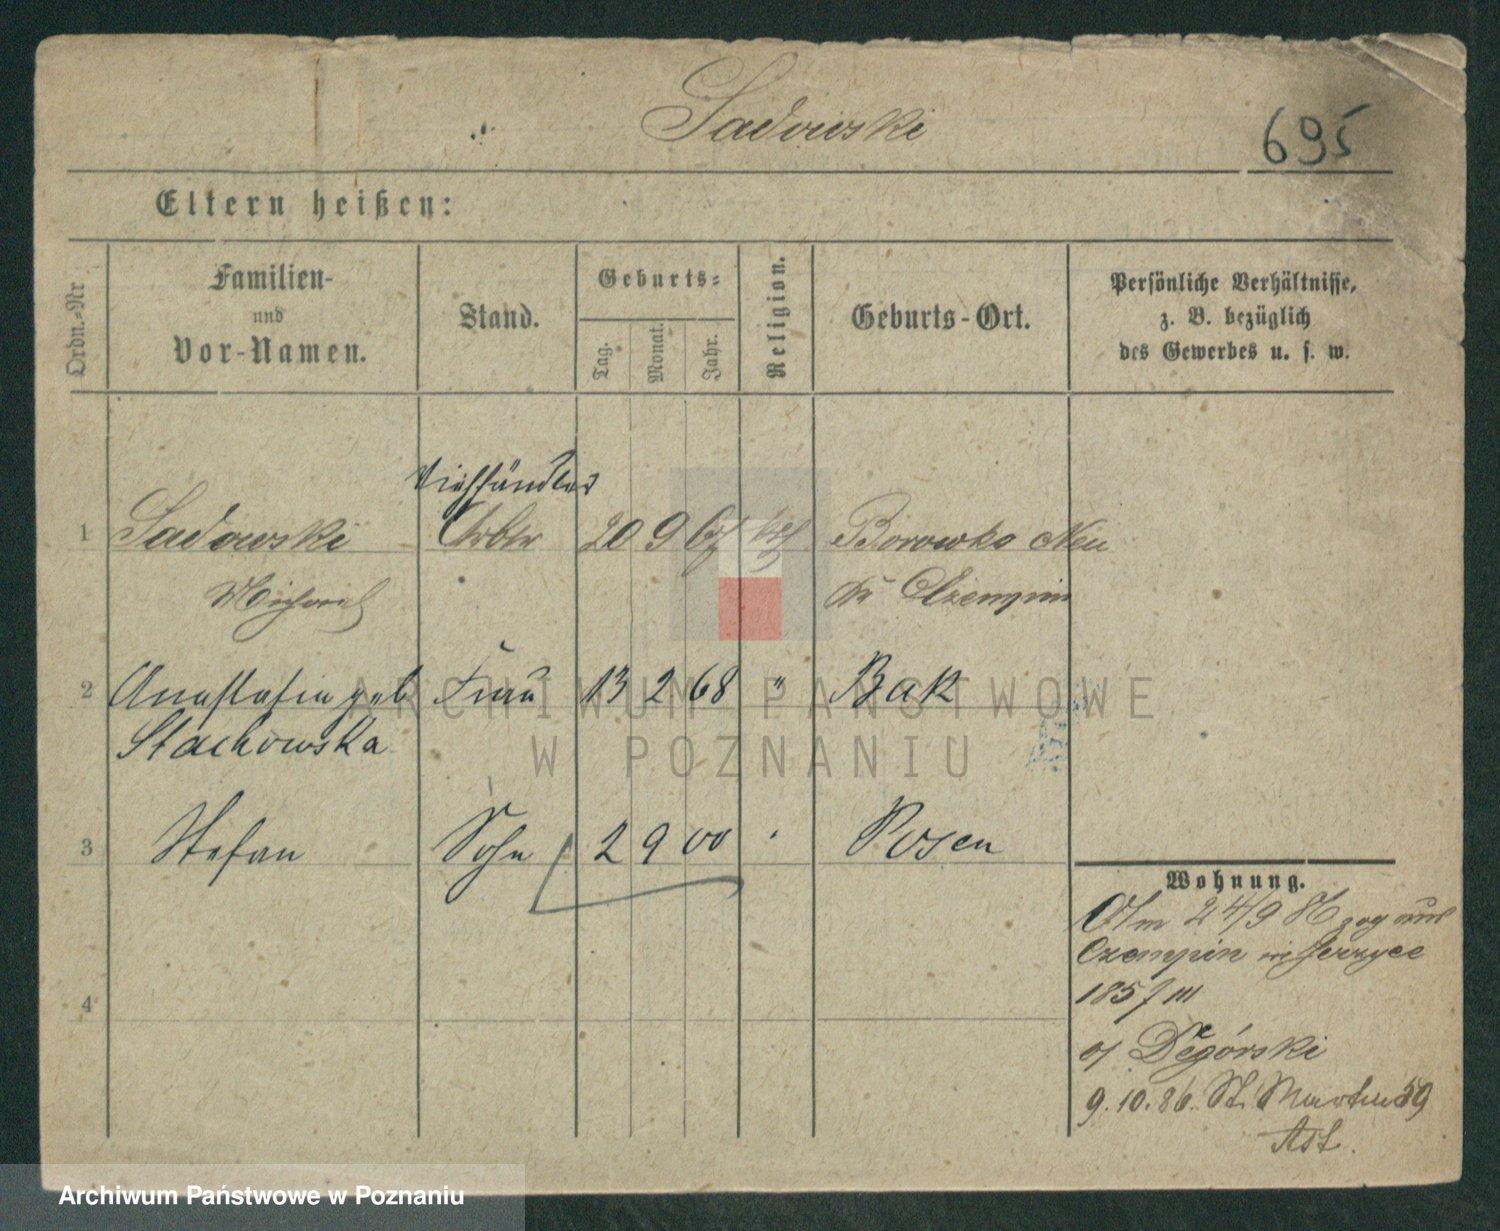 Sadowski
695
Eltern heißen:
Ordn.-Nr
Familien-
und
Vor-Namen.
Stand.
Geburts-
Tag.
Monat.
Jahr.
Religion.
Geburts-Ort.
Persönliche Verhältnisse,
z. B. bezüglich
des Gewerbes u. s. w.
Viehhändler
1 Sadowski Arbtr 20 9 67 kth Borowko Neu
Michael Kr Czempin
2 Anastasia geb Frau 13 2 68 " Bak
Stachowska
3 Stefan Sohn 2 9 00 Posen
4
Wohnung.
Am 24/9 86 zog aus
Czempin in Jerzyce
185 III
b/ Degórski
9.10.86. St. Martin 59
ARCHIWUM PAŃSTWOWE
W POZNANIU
Archiwum Państwowe w Poznaniu